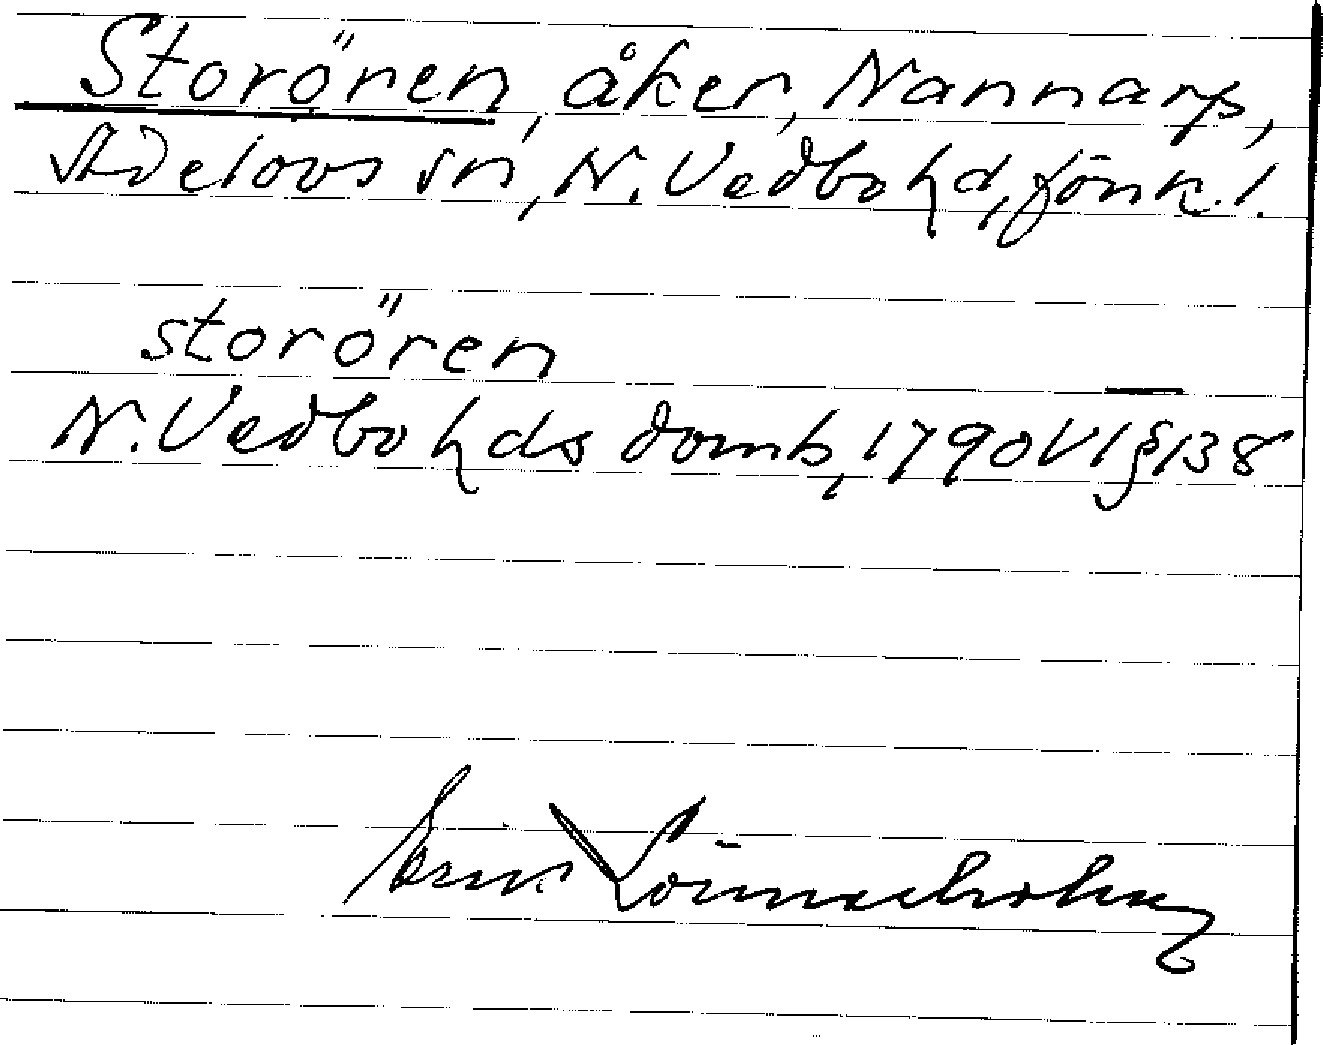 Storören, åker, Nannarp,
Adelövs sn, N. Vedbo hd, Jönk. l.
storören
N. Vedbo hds domb, 1790 VI § 138